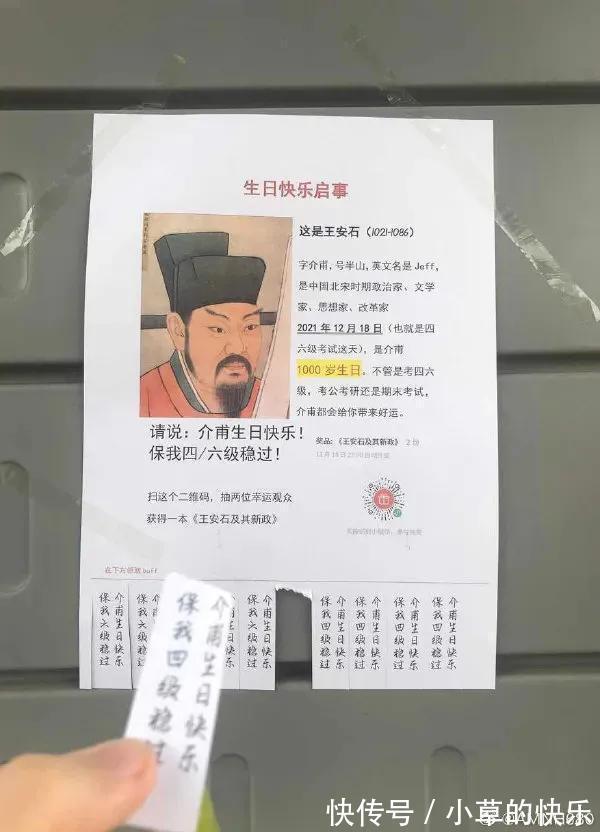 生日快乐启事
这是王安石（1021-1086）
字介甫，号半山，英文名是 Jeff，
是中国北宋时期政治家、文学
家、思想家、改革家
2021 年 12 月 18 日（也就是四
六级考试这天），是介甫
1000 岁生日。不管是考四六
级，考公考研还是期末考试，
介甫都会给你带来好运。
请说：介甫生日快乐！
保我四/六级稳过！
奖品：《王安石及其新政》 2 份
扫这个二维码，抽两位幸运观众
获得一本《王安石及其新政》
在下方领取 buff
介甫生日快乐
保我六级稳过
介甫生日快乐
保我六级稳过
介甫生日快乐
保我四级稳过
介甫生日快乐
保我四级稳过
介甫生日快乐
保我四级稳过
介甫生日快乐
保我四级稳过
介甫生日快乐
保我四级稳过
快传号 / 小草的快乐